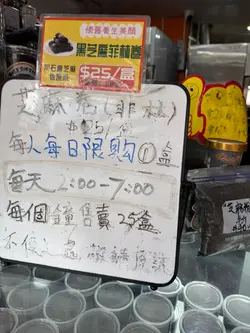 滋養養生美顏
黑芝麻菲林卷
用石磨芝麻
$25/盒
芝麻卷(菲林)
$25/盒
每人每日限购①盒
每天2:00-7:00
每個鐘售賣25盒
不便之處 敬請原諒
芝麻